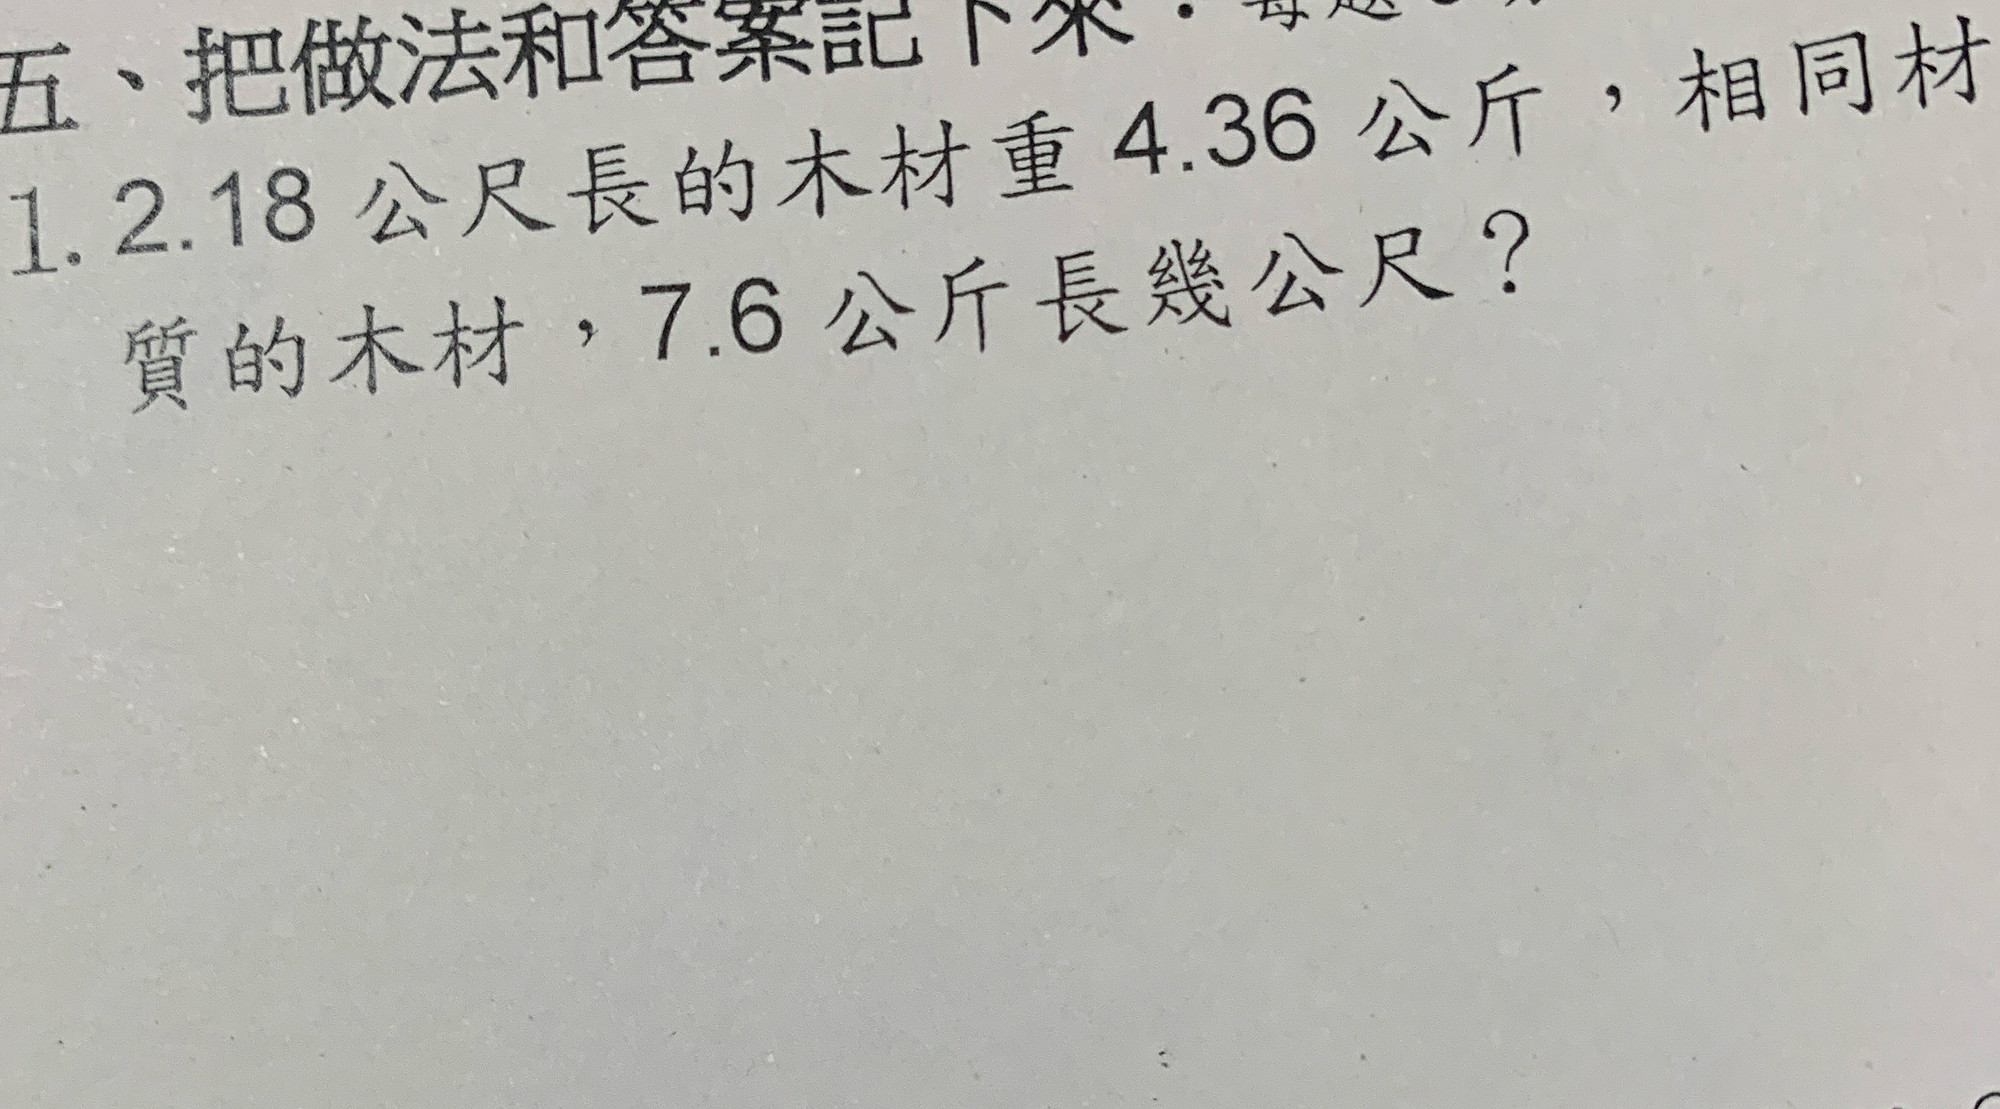 五、把做法和答案記下來：每題
1. 2.18 公尺長的木材重 4.36 公斤，相同材
質的木材，7.6 公斤長幾公尺？